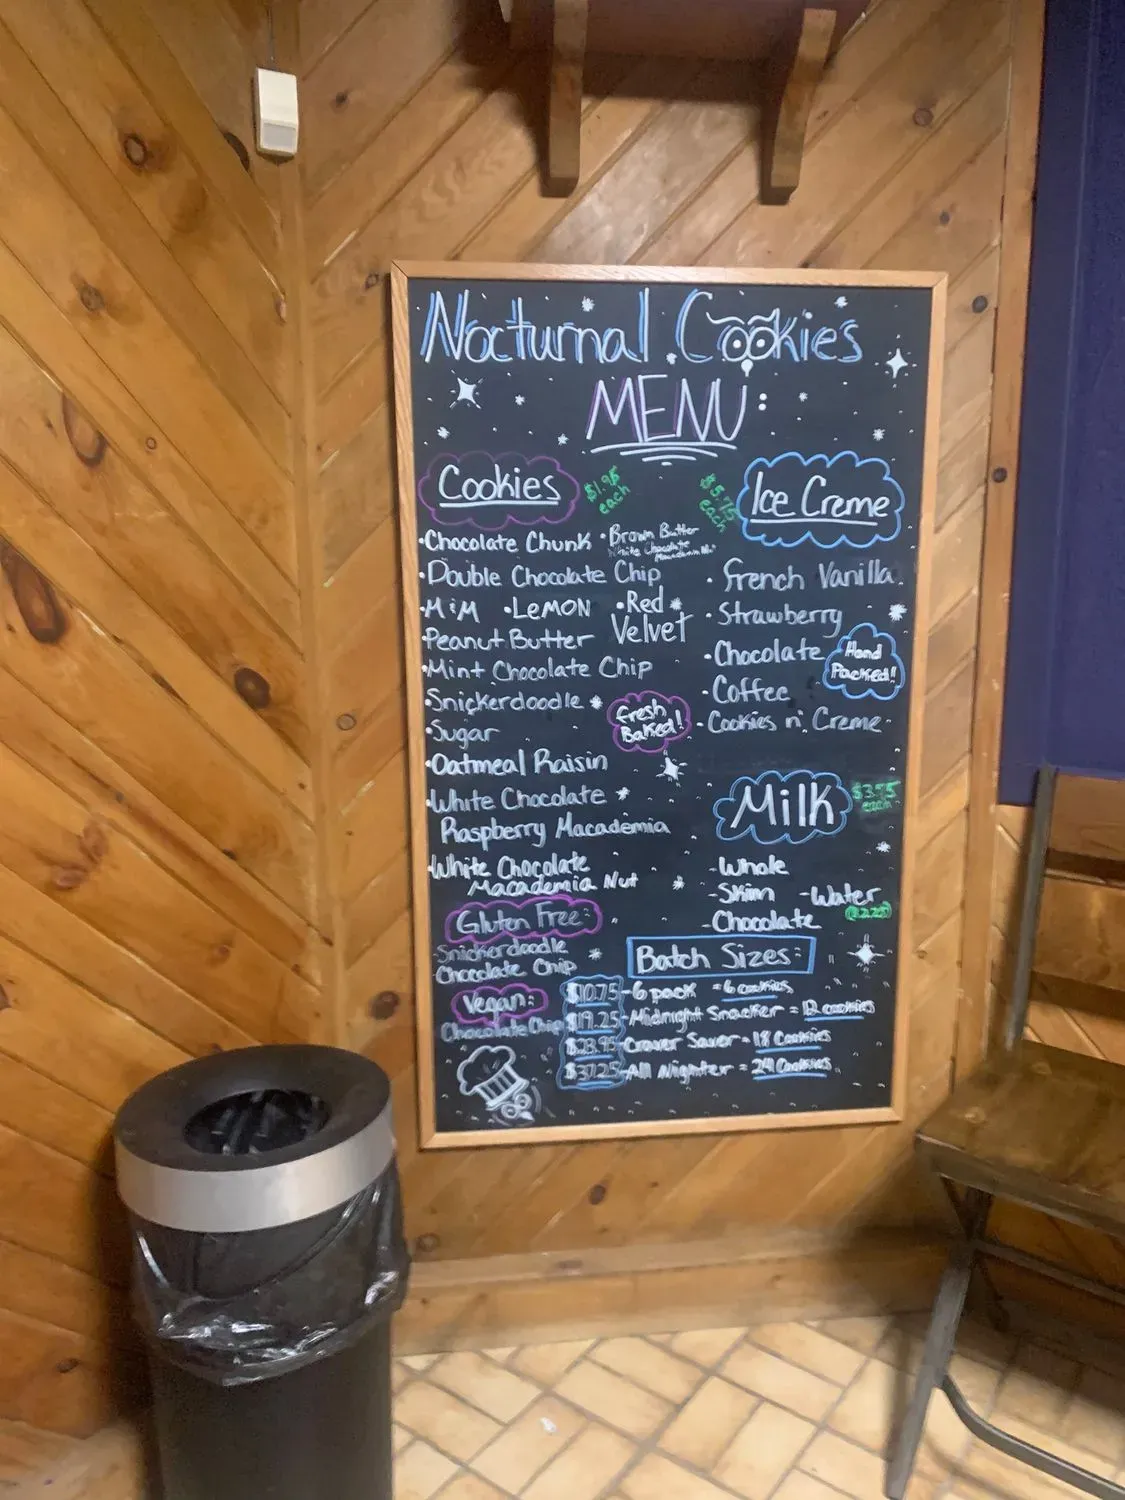 Nocturnal Cookies
MENU:
Cookies
$1.95
each
• Chocolate Chunk
• Brown Butter
White Chocolate
• Double Chocolate Chip
• M&M • LEMON • Red
Velvet
• Peanut Butter
• Mint Chocolate Chip
• Snickerdoodle
• Sugar
Fresh
Baked!
• Oatmeal Raisin
• White Chocolate
Raspberry Macademia
• White Chocolate
Macademia Nut
Gluten Free:
Snickerdoodle
Chocolate Chip
Vegan:
Chocolate Chip
each
Ice Creme
• French Vanilla
• Strawberry
• Chocolate
Hand
Packed!!
• Coffee
• Cookies n' Creme
Milk
each
- Whole
- Skim - Water
- Chocolate
Batch Sizes:
$10.75 - 6 pack = 6 cookies
$19.25 - Midnight Snacker = 12 cookies
- Craver Saver = 18 Cookies
$37.25 - All Nighter = 24 Cookies